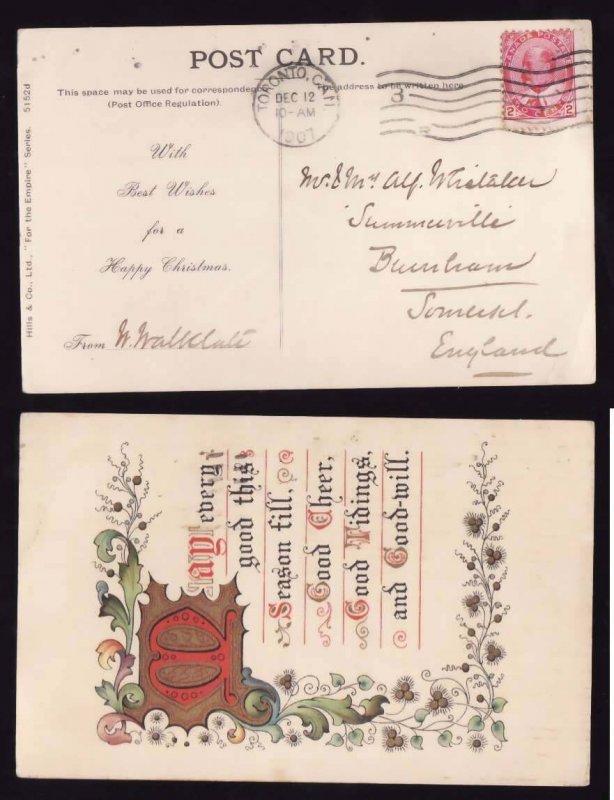 POST CARD.
This space may be used for correspondence
(Post Office Regulation).
The address to be written here.
TORONTO, CAN
DEC 12
10-AM
1907
CANADA POSTAGE
2 TWO CENTS 2
Hills & Co., Ltd., "For the Empire" Series. 5152d
With
Best Wishes
for a
Happy Christmas.
From W. Walklate
Mr. & Mrs Alf. Whitaker
Summerville
Burnham
Somerset.
England
May every
good this
Season fill,
Good Cheer,
Good Tidings,
and Good-will.